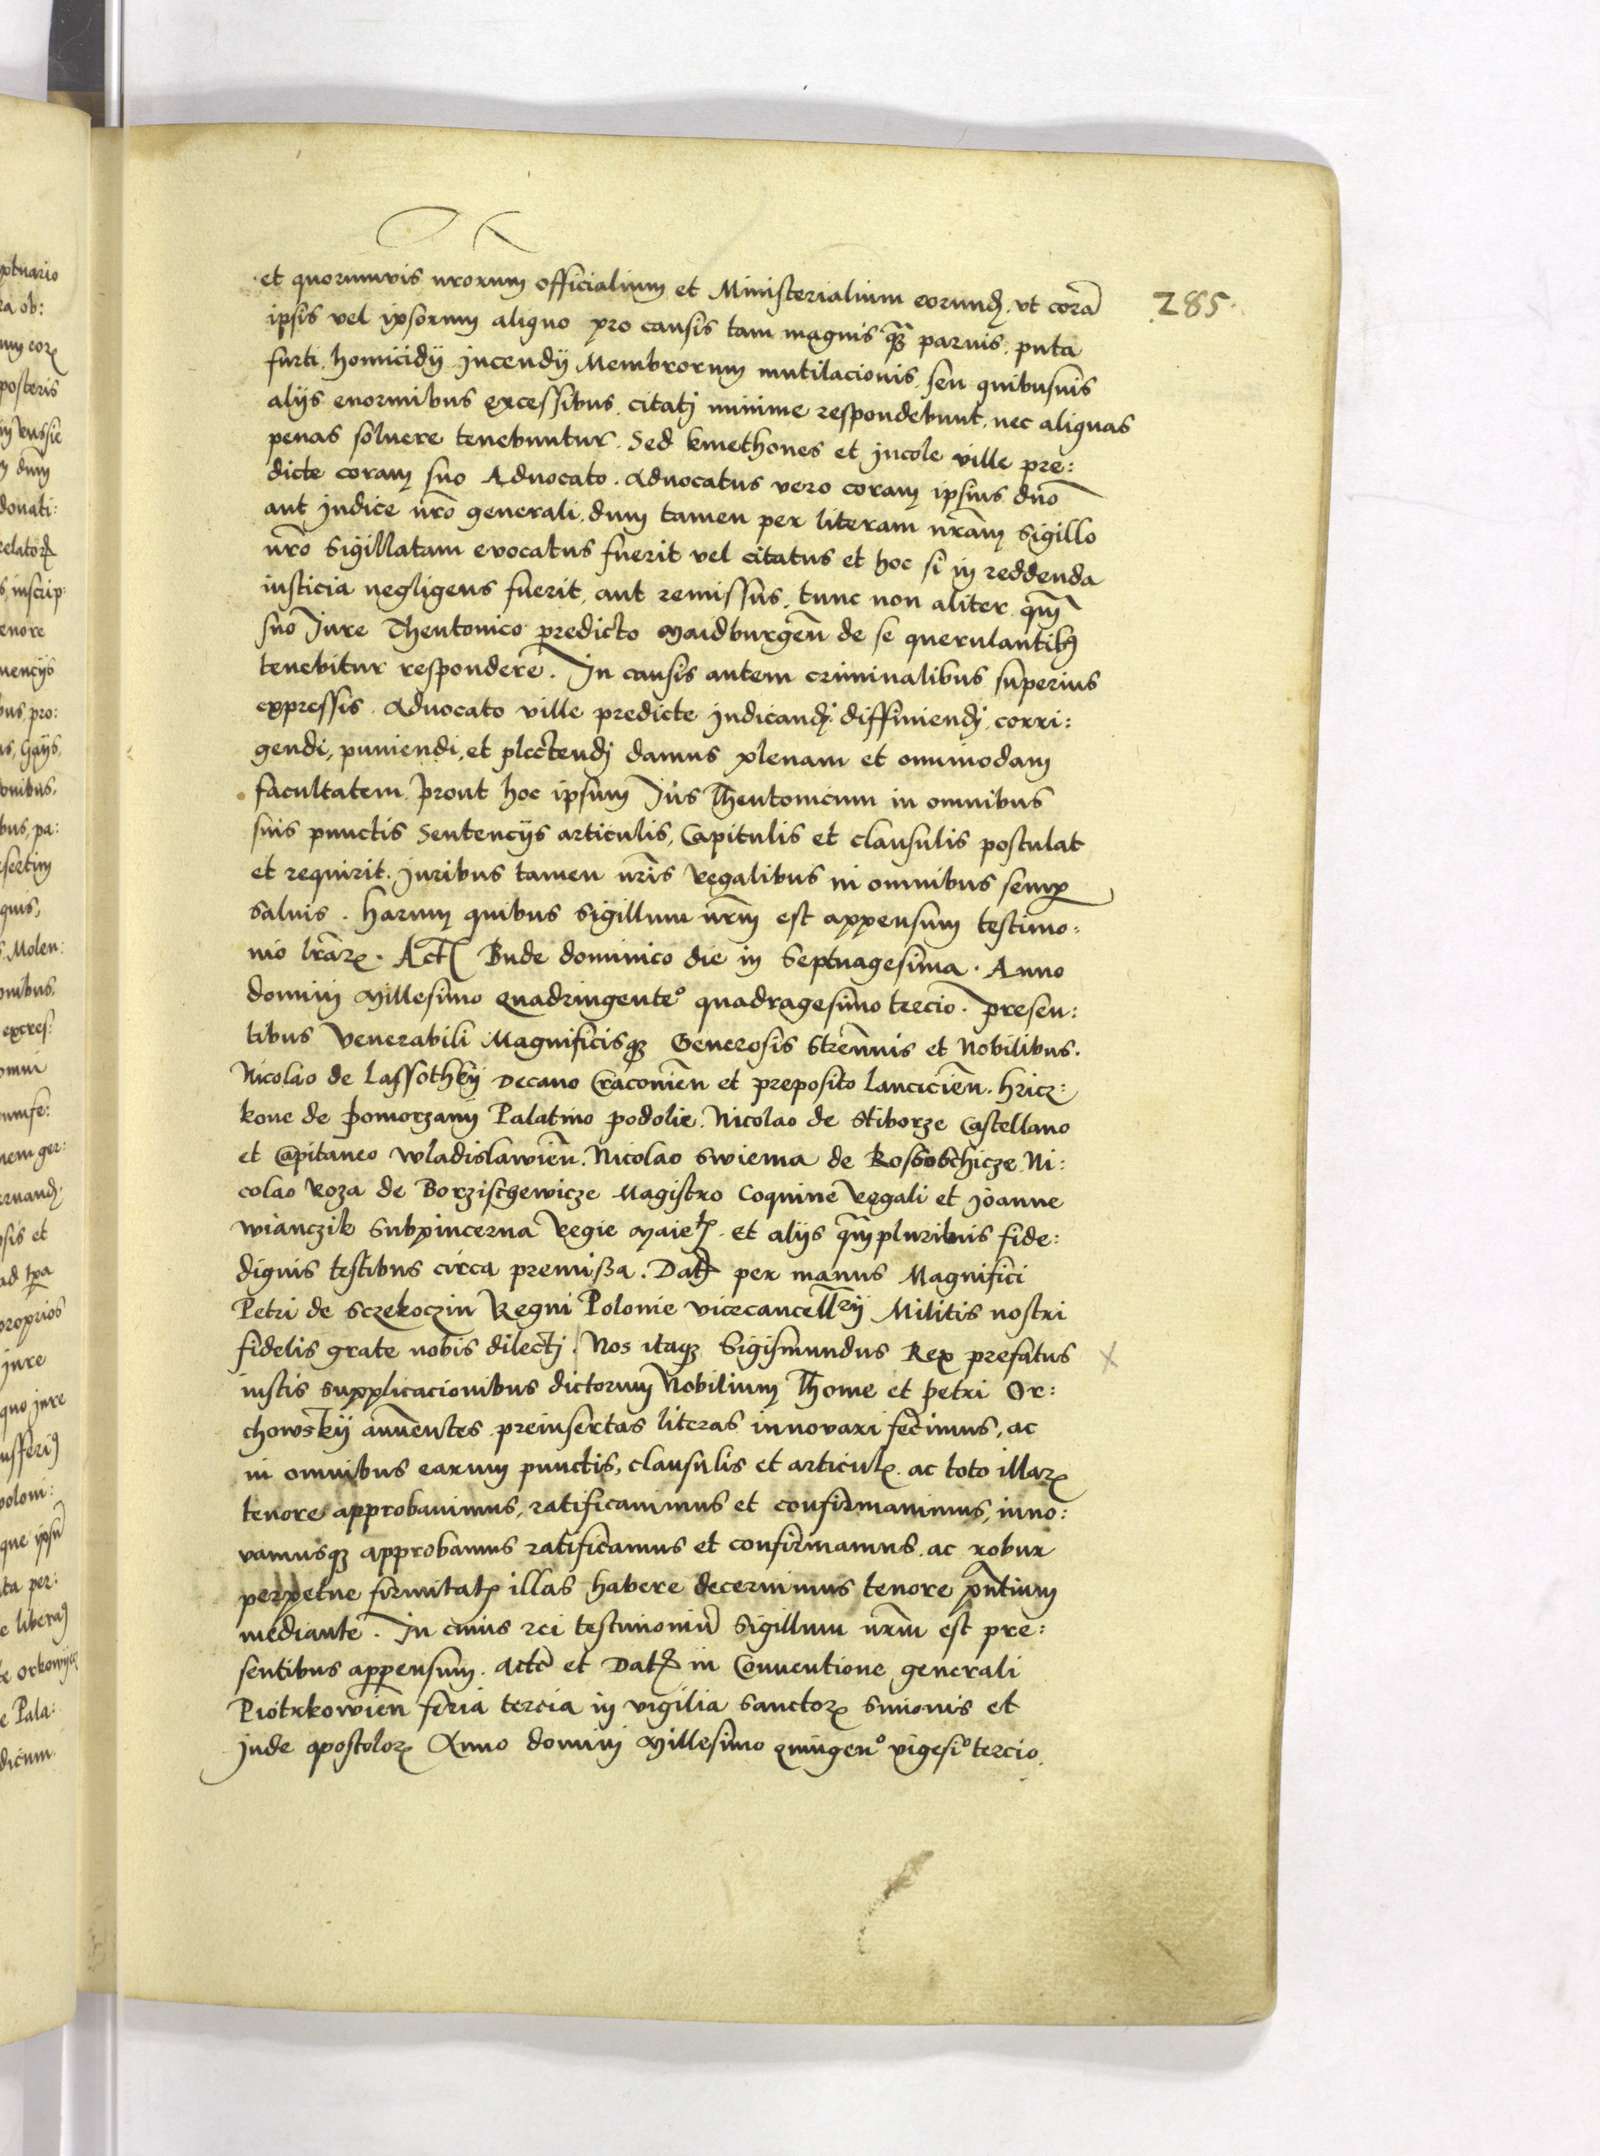 285
et quorumvis nrorum officialium et Ministerialium eorund. ut corā
ipsis vel ipsorum aliquo pro causis tam magnis qꝫ parvis, puta
furti, homicidij Incendij Membrorum mutilacionis, seu quibusuis
alijs enormibus excessibus citatj minime respondebunt, nec aliquas
penas soluere tenebuntur. Sed kmethones et jncole ville pre:
dicte coram suo Advocato. Advocatus vero coram ipsius dno
aut judice nrō generali, dum tamen per literam nrām sigillo
nrō sigillatam evocatus fuerit vel citatus et hoc si in reddenda
iusticia negligens fuerit, aut remissus, tunc non aliter qm̄
suo Iure Theutonico predicto Maidburgen̄ de se querulantibꝫ
tenebitur respondere. In causis autem criminalibus superius
expressis Advocato ville predicte judicandj diffiniendj, corri:
gendi, puniendi, et plectendj damus plenam et omnimodam
facultatem, prout hoc ipsum Jus Theutonicum in omnibus
suis punctis Sentencijs articulis, Capitulis et clausulis postulat
et requirit. Juribus tamen nrīs Regalibus in omnibus semp
salvis. Harum quibus sigillum nrm̄ est appensum testimo:
nio lrāꝝ. Act Bude dominico die in Septuagesima. Anno
dominj Millesimo Quadringenteᵒ quadragesimo tercio. presen:
tibus Venerabili Magnificisqꝫ Generosis Strennis et Nobilibus.
Nicolao de Lassothky Decano Cracouien̄ et preposito Lancicien̄. Hricz:
kone de pomorzanij Palatino podolie. Nicolao de Stiborze Castellano
et Capitaneo wladislawien̄. Nicolao Swiema de Rossobchicze, Ni:
colao Roza de Borzischewicze Magistro Coquine Regali et Joanne
wianczik Subpincerna Regie Maietꝭ. et alijs qm̄pluribuis fide:
dignis testibus circa premissa. Datꝭ per manus Magnifici
Petri de Sczekoczin Regni Polonie vicecancellrij Militis nostri
fidelis grate nobis dilectj. Nos itaqꝫ Sigismundus Rex prefatus
iustis supplicacionibus dictorum Nobilium Thome et petri Or:
chowskij annuentes preinsertas literas innovari fecimus, ac
in omnibus earum punctis, clausulis et articulꝭ. ac toto illaꝝ
tenore approbauimus, ratificauimus et confirmauimus, inno:
vamusqꝫ approbamus ratificamus et confirmamus. ac robur
perpetue firmitatꝭ illas habere decernimus tenore pn̄tium
mediante. In cuius rei testimoniū Sigillum nrm̄ est pre:
sentibus appensum. Actꝭ et Datꝭ in Conuentione generali
Piotrkowien̄ feria tercia in vigilia Sanctoꝝ Simonis et
Jude apostoloꝝ Anno dominj Millesimo quingenᵒ vigesiᵒ tercio.